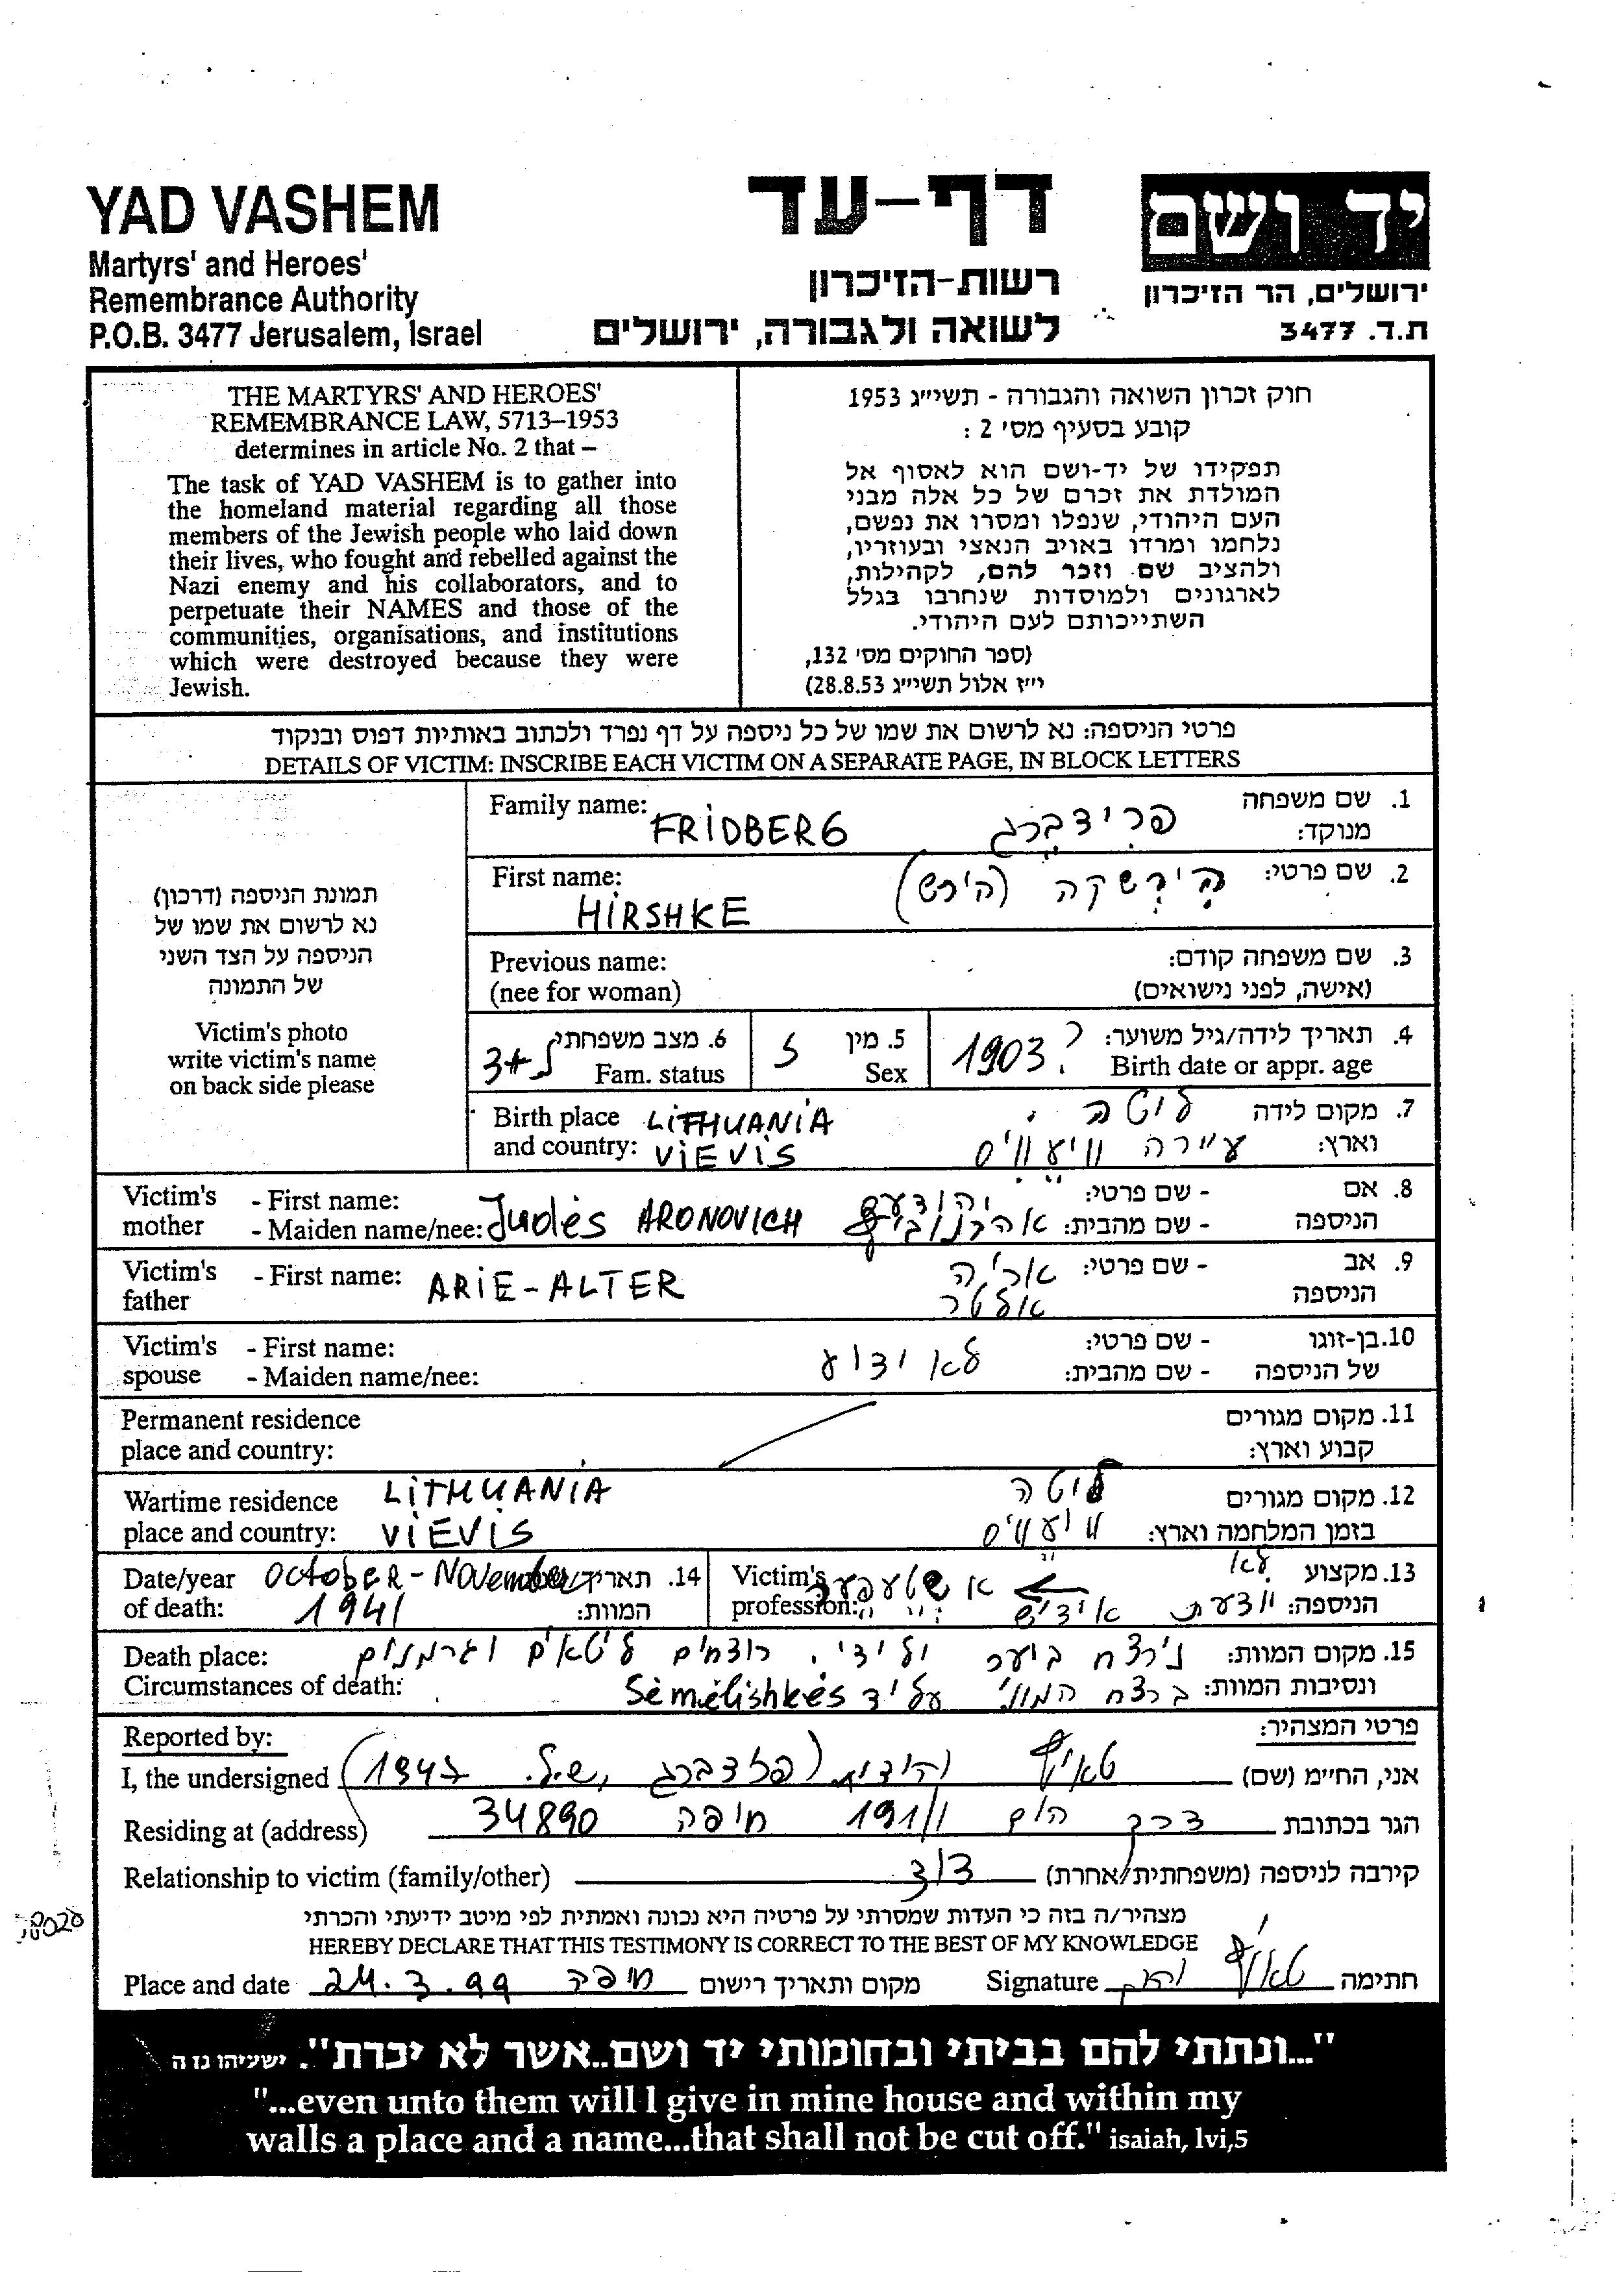 YAD VASHEM
Martyrs' and Heroes'
Remembrance Authority
P.O.B. 3477 Jerusalem, Israel
דף-עד
רשות-הזיכרון
לשואה ולגבורה, ירושלים
יד ושם
ירושלים, הר הזיכרון
ת.ד. 3477
THE MARTYRS' AND HEROES'
REMEMBRANCE LAW, 5713–1953
determines in article No. 2 that –
The task of YAD VASHEM is to gather into
the homeland material regarding all those
members of the Jewish people who laid down
their lives, who fought and rebelled against the
Nazi enemy and his collaborators, and to
perpetuate their NAMES and those of the
communities, organisations, and institutions
which were destroyed because they were
Jewish.
חוק זכרון השואה והגבורה - תשי״ג 1953
קובע בסעיף מס' 2 :
תפקידו של יד-ושם הוא לאסוף אל
המולדת את זכרם של כל אלה מבני
העם היהודי, שנפלו ומסרו את נפשם,
נלחמו ומרדו באויב הנאצי ובעוזריו,
ולהציב שם וזכר להם, לקהילות,
לארגונים ולמוסדות שנחרבו בגלל
השתייכותם לעם היהודי.
(ספר החוקים מס' 132,
י״ז אלול תשי״ג 28.8.53)
פרטי הניספה: נא לרשום את שמו של כל ניספה על דף נפרד ולכתוב באותיות דפוס ובנקוד
DETAILS OF VICTIM: INSCRIBE EACH VICTIM ON A SEPARATE PAGE, IN BLOCK LETTERS
תמונת הניספה (דרכון)
נא לרשום את שמו של
הניספה על הצד השני
של התמונה
Victim's photo
write victim's name
on back side please
Family name: FRIDBERG פרידברג 1. שם משפחה
מנוקד:
First name: HIRSHKE הירשקה (הירש) 2. שם פרטי:
Previous name: 3. שם משפחה קודם:
(nee for woman) (אישה, לפני נישואים)
3+ 6. מצב משפחתי 5. מין 1903? 4. תאריך לידה/גיל משוער:
Fam. status Sex Birth date or appr. age
Birth place LITHUANIA ליטה 7. מקום לידה
and country: VIEVIS עיירה וויעוויס וארץ:
Victim's - First name: - שם פרטי: 8. אם
mother - Maiden name/nee: Judès ARONOVICH - שם מהבית: הניספה
Victim's - First name: ARIE-ALTER אריה - שם פרטי: 9. אב
father אלטר הניספה
Victim's - First name: לא ידוע - שם פרטי: 10. בן-זוגו
spouse - Maiden name/nee: - שם מהבית: של הניספה
Permanent residence 11. מקום מגורים
place and country: קבוע וארץ:
Wartime residence LITHUANIA ליטה 12. מקום מגורים
place and country: VIEVIS וויעוויס בזמן המלחמה וארץ:
Date/year October - November 14. תאריך Victim's לא 13. מקצוע
of death: 1941 המוות: profession: אידיש יודעת הניספה:
Death place: נירצח ביער על ידי רוצחים ליטאים וגרמנים 15. מקום המוות:
Circumstances of death: ברצח המוני על יד Sèmèlishkès ונסיבות המוות:
Reported by: פרטי המצהיר:
I, the undersigned יהודית אני, החי״מ (שם)
Residing at (address) דרך הים 191/1 חיפה 34890 הגר בכתובת
Relationship to victim (family/other) דוד קירבה לניספה (משפחתית/אחרת)
מצהיר/ה בזה כי העדות שמסרתי על פרטיה היא נכונה ואמתית לפי מיטב ידיעתי והכרתי
HEREBY DECLARE THAT THIS TESTIMONY IS CORRECT TO THE BEST OF MY KNOWLEDGE
Place and date 24.3.99 חיפה מקום ותאריך רישום Signature חתימה
"...ונתתי להם בביתי ובחומותי יד ושם..אשר לא יכרת". ישעיהו נו ה
"...even unto them will I give in mine house and within my
walls a place and a name...that shall not be cut off." isaiah, lvi,5